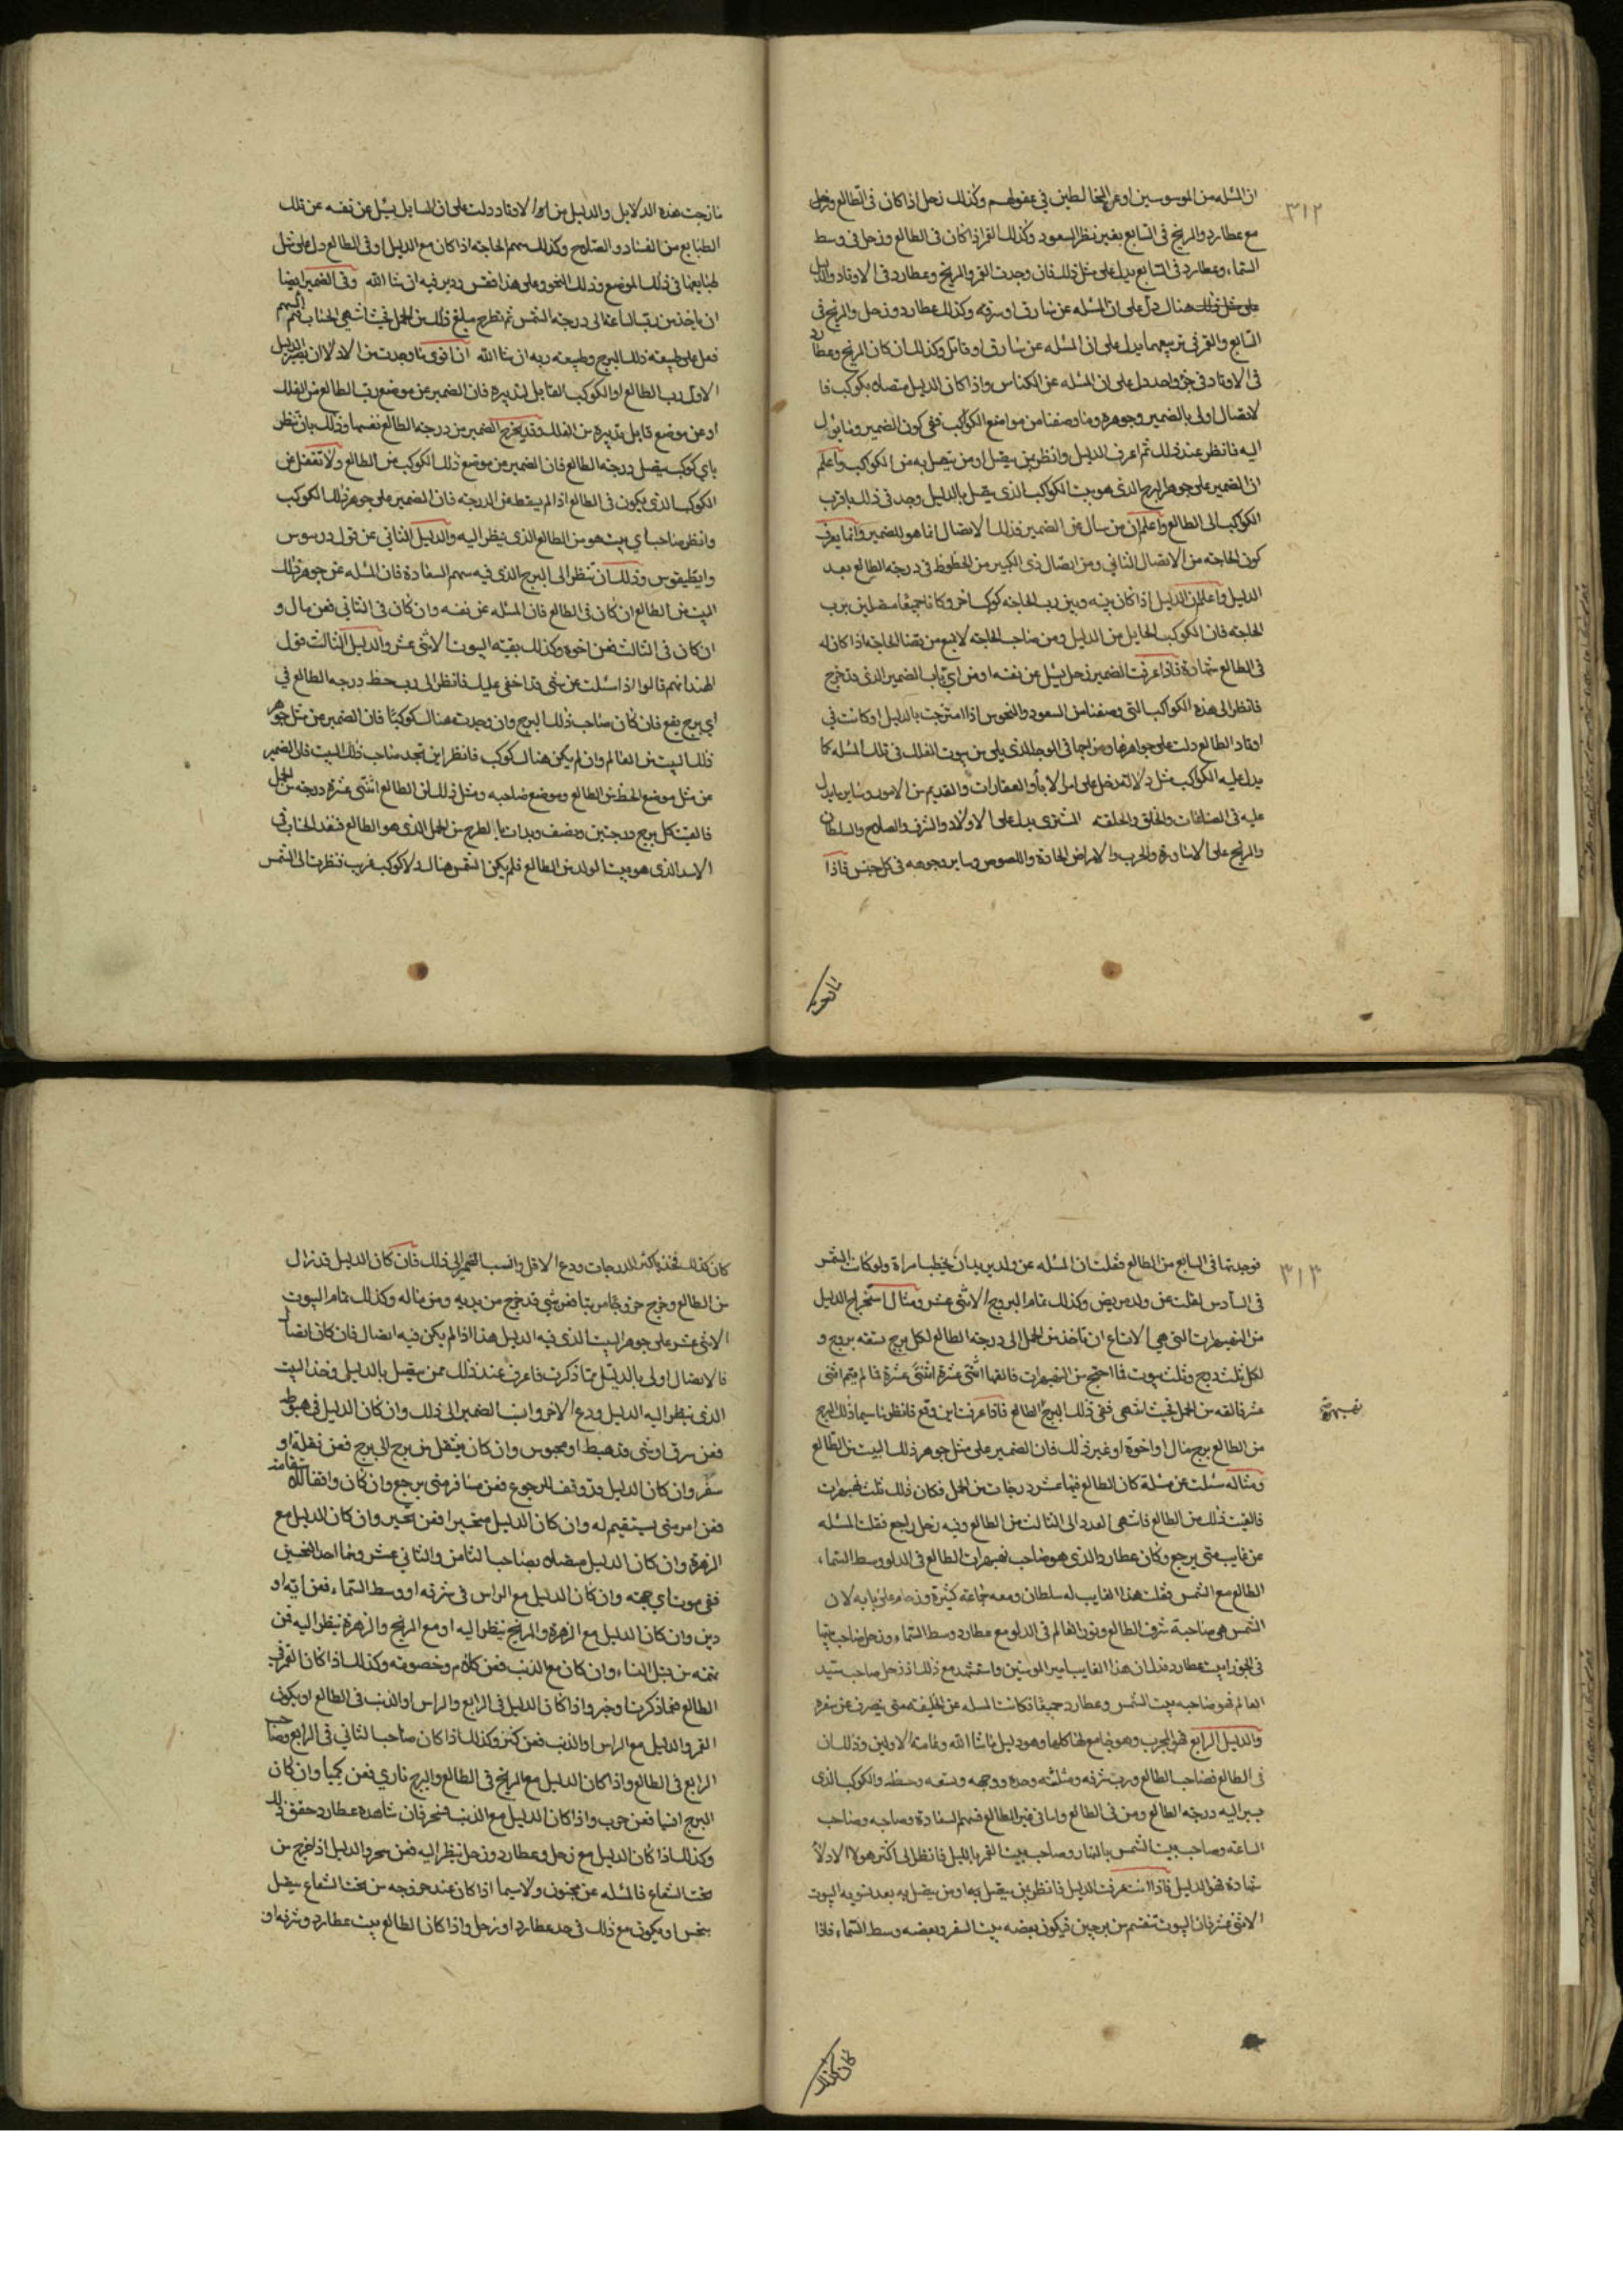 ٣١٢
ان المسئله من الموسوسين او عن المخالطين في عقولهم وكذلك زحل اذا كان في الطالع وزحل
مع عطارد والمريخ في السابع بغير نظر السعود وكذلك القمر اذا كان في الطالع وزحل في وسط
السماء وعطارد في السابع يدل على مثل ذلك فان وجدت القمر والمريخ وعطارد في الاوتاد والدليل
على مثل ذلك هنالك دل على ان المسئله عن سارق او سرقة وكذلك عطارد وزحل والمريخ في
السابع والقمر في تربيعهما يدل على ان المسئله عن سارق او قاتل وكذلك ان كان المريخ وعطارد
في الاوتاد في جزؤ واحد دل على ان المسئله عن الكناس واذا كان الدليل متصلا بكوكب فا
لاتصال اولى بالضمير وجوهره وما وصفنا من مواضع الكواكب ففي كون الضمير وما يؤل
اليه فانظر عند ذلك ثم اعرف الدليل وانظر بمن يتصل او من يتصل به من الكواكب واعلم
ان الضمير على جوهر البرج الذي هو بيت الكوكب الذي يتصل بالدليل وجد في ذلك باقرب
الكواكب الى الطالع واعلم ان من سال عن الضمير فذلك الاتصال انما هو للضمير وانما يعرف
كون الحاجة من الاتصال الثاني ومن اتصال ذي الكبير من الحظوظ في درجة الطالع بعد
الدليل واعلم ان الدليل اذا كان بينه وبين رب الحاجه كوكب اخر وكانا جميعا متصلين برب
الحاجة فان الكوكب الحايل من الدليل ومن صاحب الحاجه لا يمنع من قضا الحاجه اذا كان له
في الطالع شهادة فاذا عرفت الضمير زحل يسئل عن نفسه او من اي باب الضمير الذي قد خرج
فانظر الى هذه الكواكب التي وصفنا من السعود والنحوس اذا امتزجت بالدليل او كانت في
اوتاد الطالع دلت على جواهرها ومزاجها في الوجه الذي يلي من بيوت الفلك في تلك المسئله كما
يدل عليه الكواكب مثل دلالة زحل على امر الاباء والعقارات والقديم من الامور وساير ما يدل
عليه في الصناعات والخلق والخلقه المشتري يدل على الاولاد والشرف والصلاح والسلطان
والمريخ على الاساورة والحرب والامراض الحادة واللصوص وساير وجوهه في كل جنس فاذا
مازجت
مازجت هذه الدلايل والدليل من لها الاوتاد دلت على ان السايل يسئل عن نفسه عن تلك
الطبايع من الفساد والصلاح وكذلك سهم الحاجة اذا كان مع الدليل او في الطالع دل على مثل
طبايعها في ذلك الموضع وذلك النحو وعلى هذا فقس ودبر فيه ان شا الله وفي الضمير ايضا
ان ياخذ من رب الساعة الى درجة الشمس ثم تطرح مبلغ ذلك من الحمل فحيث انتهى الحساب ثم السهم
فعل على طبيعة ذلك البرج وطبيعة ربه ان شا الله ان اقوى ما وجدت من الادلا ان يصير الدليل
الاول رب الطالع او الكوكب القابل لتدبيره فان الضمير عن موضع رب الطالع من الفلك
او عن موضع قابل تدبيره من الفلك وقد يخرج الضمير من درجة الطالع نفسها وذلك بان تنظر
باي كوكب يتصل درجة الطالع فان الضمير من موضع ذلك الكوكب من الطالع ولا تغفل عن
الكوكب الذي يكون في الطالع اذا لم يسقط عن الدرجة فان الضمير على جوهر ذلك الكوكب
وانظر صاحب اي بيت هو من الطالع الذي ينظر اليه والدليل الثاني عن قول دورسوس
وايطيقوس وذلك ان تنظر الى البرج الذي فيه سهم السعادة فان المسئله عن جوهر ذلك
البيت من الطالع ان كان في الطالع فان المسئله عن نفسه وان كان في الثاني فعن مال و
ان كان في الثالث فعن اخوه وكذلك بقيه البيوت الاثني عشر والدليل الثالث قول
الهند انهم قالوا اذا سئلت عن شي قد اخفي عليك فانظر الى رب حظ درجة الطالع في
اي برج يقع فان كان صاحب ذلك البرج وان وجدت هنالك كوكبا فان الضمير من مثل جوهر
ذلك البيت من العالم وان لم يكن هنالك كوكب فانظر اين تجد صاحب ذلك البيت فان الضمير
من مثل موضع الحظ من الطالع وموضع صاحبه ومثل ذلك ان الطالع اثنتي عشرة درجة من الحمل
فالقيت كل برج درجتين ونصف وبدات بالطرح من الحمل الذي هو الطالع فنفد الحساب في
الاسد الذي هو بيت الولد من الطالع فلم يكن الشمس هنالك ولا كوكب غريب فنظرت الى الشمس
٣١٣
فوجدتها في السابع من الطالع فقلت ان المسئله عن ولد يريد ان يخطب امراة ولو كانت الشمس
في السادس لقلت عن ولد مريض وكذلك تمام البروج الاثني عشر ومثال استخراج الدليل
من النهبهرات التي هي الاتساع ان تاخذ من الحمل الى درجة الطالع لكل برج تسعه بروج و
لكل ثلث درج وثلث بيوت فما اجتمع من النهبهرات فالقها اثنتي عشرة اثنتي عشرة فما لم يتم اثني
عشر فالقه من الحمل فحيث انتهى ففي ذلك البرج الطالع فاذا عرفت اين وقع فانظر ما سيما ذلك البرج
نهبهرة
من الطالع برج مال او اخوة او غير ذلك فان الضمير على مثل جوهر ذلك البيت من الطالع
ومثاله سئلت عن مسئلة كان الطالع فيها عشر درجات من الحمل فكان ذلك ثلث نهبهرات
فالقيت ذلك من الطالع فانتهى العدد الى الثالث من الطالع وفيه زحل راجع فقلت المسئله
عن غايب متى يرجع وكان عطارد الذي هو صاحب نهبهرات الطالع في الدلو وسط السماء
الطالع مع الشمس فقلت هذا الغايب له سلطان ومعه جماعة كثيرة وزحام على بابه لان
الشمس هي صاحبة شرف الطالع ونور العالم في الدلو مع عطارد وسط السماء وزحل صاحب بيتها
في الجوزا بيت عطارد فدل ان هذا الغايب امير المومنين واستشهد مع ذلك اذ زحل صاحب سيد
العالم فهو صاحبه بيت الشمس وعطارد جميعا فكانت المسله عن الخليفه متى ينصرف عن سفره
والدليل الرابع فهو المجرب وهو جامع لهذا كلها وهو دليل ماشا الله وعامة الاولين وذلك ان
في الطالع فصاحب الطالع ورب شرفه ومثلثته وحده ووجهه وتسعه وحظه والكوكب الذي
يسير اليه درجة الطالع ومن في الطالع واما في غير الطالع فسهم السعادة وصاحبه وصاحب
الساعه وصاحب بيت الشمس بالنهار وصاحب بيت القمر بالليل فانظر الى اكثر هولا الادلاء
شهادة فهو الدليل فاذا انت عرفت الدليل فانظر بمن يتصل به او من يتصل به بعد تسويه البيوت
الاثني عشر فان البيوت تنقسم من برجين فيكون بعضه بيت السفر وبعضه وسط السماء فاذا
كان كذلك
كان كذلك فخذ باكثر الدرجات ودع الاقل وانسب الضمير الى ذلك فان كان الدليل قد زال
من الطالع وخرج خروجا مريبا فعن شي قد خرج من يديه ومن ماله وكذلك تمام البيوت
الاثني عشر على جوهر البيت الذي فيه الدليل هذا اذا لم يكن فيه اتصال فان كان اتصال
فالاتصال اولى بالدليل مما ذكرت فاعرف عند ذلك ممن يتصل بالدليل وخذ البيت
الذي ينظر اليه الدليل ودع الاخر وانسب الضمير الى ذلك وان كان الدليل في هبوطه
فعن سرق او شي قد هبط او محبوس وان كان ينتقل من برج الى برج فعن نقلة او
سفر وان كان الدليل قد وقف للرجوع فعن مسافر متى يرجع وان كان واقفا للاستقامة
فعن امر متى يستقيم له وان كان الدليل متحيرا فعن تحير وان كان الدليل مع
الزهرة وان كان الدليل متصلا بصاحب الثامن والثاني عشر وهما احد النحسين
ففي موت اي جهته وان كان الدليل مع الراس في شرفه او وسط السماء فعن اية او
دين وان كان الدليل مع الزهرة والمريخ ينظر اليه او مع المريخ والزهرة ينظر اليه فمن
تهمه من قبل النساء وان كان مع الذنب فعن كلام وخصومه وكذلك اذا كان القمر في
الطالع فما ذكرنا وخبر واذا كان الدليل في الرابع والراس او الذنب في الطالع او يكون
القمر والدليل مع الراس والذنب فعن كنز وكذلك اذا كان صاحب الثاني في الرابع وصاحب
الرابع في الطالع واذا كان الدليل مع المريخ في الطالع والبرج ناري فعن كيميا وان كان
البرج انسيا فعن حرب واذا كان الدليل مع الذنب فسحر فان شاهده عطارد حقق ذلك
وكذلك اذا كان الدليل مع زحل وعطارد وزحل ينظر اليه فعن سحر والدليل اذا خرج من
تحت الشعاع فالمسئله عن مجنون ولا سيما اذا كان عند خروجه من تحت الشعاع يتصل
بنحس او يكون مع ذلك في حد عطارد او زحل واذا كان الطالع بيت عطارد وشرفه او